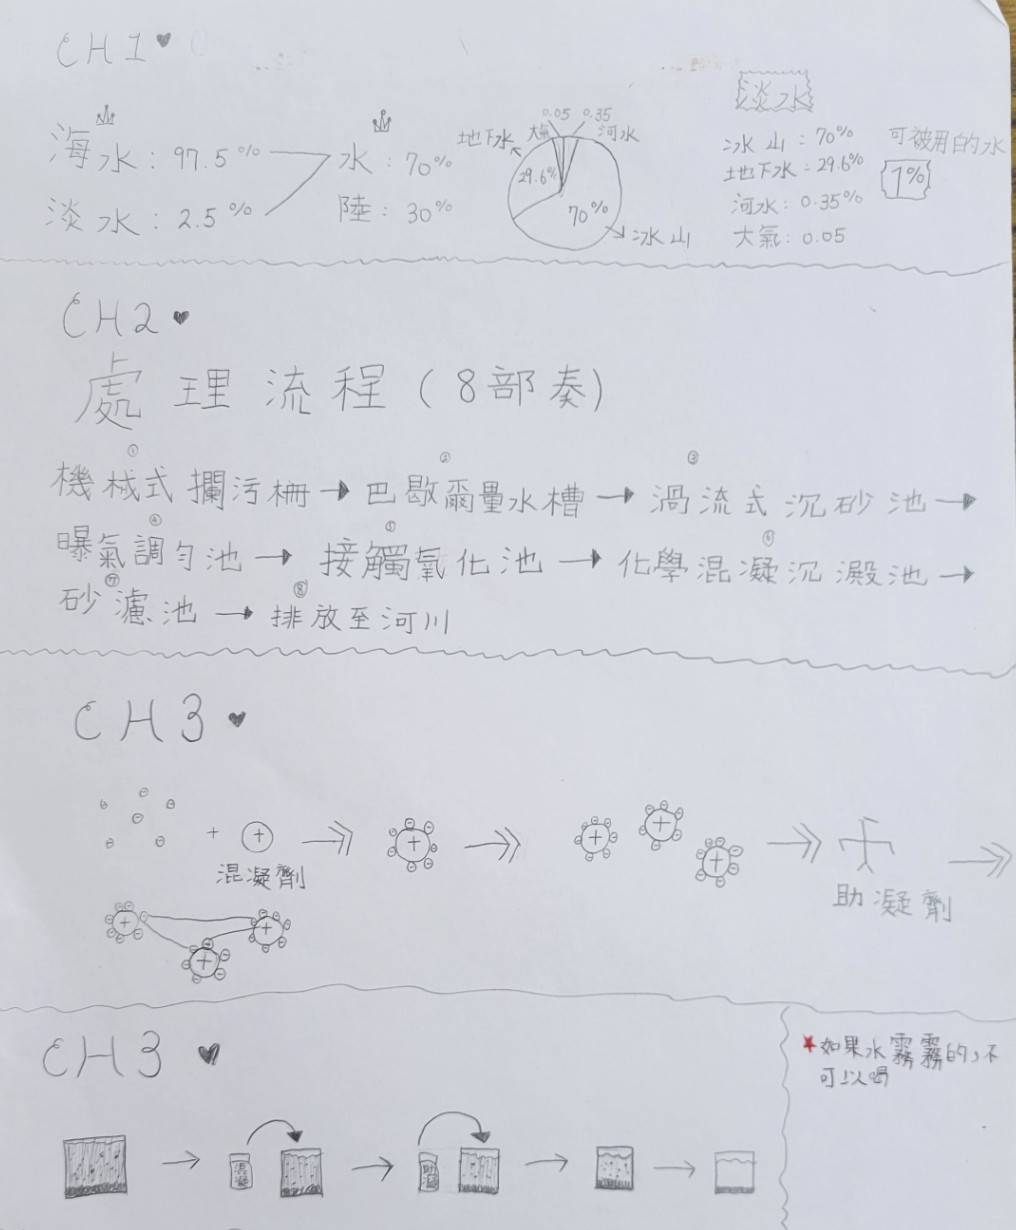 CH1
海水：97.5%
淡水：2.5%
水：70%
陸：30%
地下水
大氣
0.05
0.35
河水
29.6%
70%
冰山
淡水
冰山：70%
地下水：29.6%
河水：0.35%
大氣：0.05
可被用的水
1%
CH2
處理流程（8部奏）
① ② ③
機械式攔污柵→巴歇爾量水槽→渦流式沉砂池→
④ ⑥
曝氣調勻池→接觸氧化池→化學混凝沉澱池→
⑦ ⑧
砂濾池→排放至河川
CH3
+
+
混凝劑
+
+
+
+
助凝劑
+
+
+
CH3
混凝
助凝
★如果水霧霧的，不
可以喝